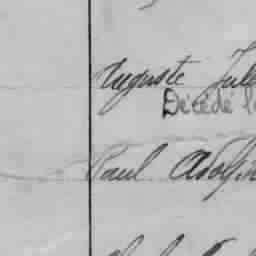 Auguste Jule
Décédé l
Paul Adolph